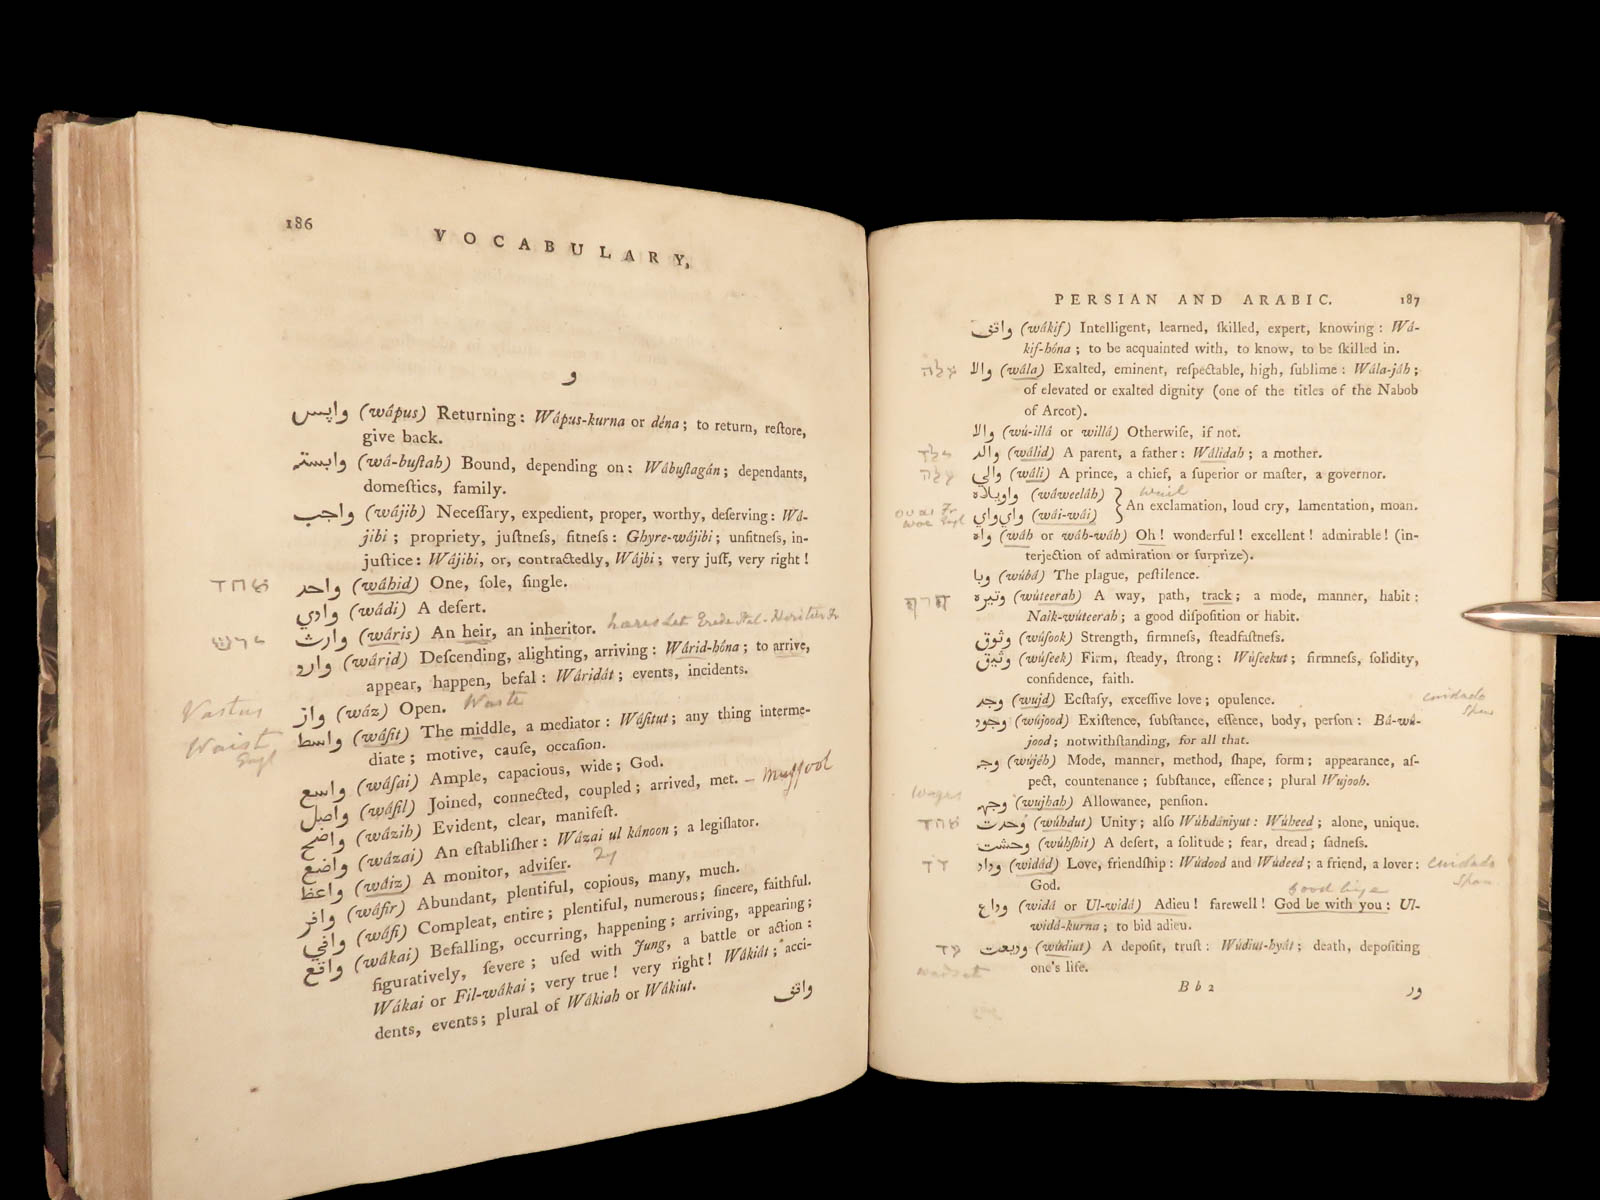 186
VOCABULARY,
و
واپس (wápus) Returning: Wápus-kurna or déna; to return, reſtore,
give back.
وابسته (wá-buſtah) Bound, depending on: Wábuſtagán; dependants,
domeſtics, family.
واجب (wájib) Neceſſary, expedient, proper, worthy, deſerving: Wá-
jibi; propriety, juſtneſs, fitneſs: Ghyre-wájibi; unfitneſs, in-
juſtice: Wájibi, or, contractedly, Wájbi; very juſt, very right!
واحد (wáhid) One, ſole, ſingle.
وادي (wádi) A deſert.
وارث (wáris) An heir, an inheritor.
وارد (wárid) Deſcending, alighting, arriving: Wárid-hóna; to arrive,
appear, happen, befal: Wáridát; events, incidents.
Vastus
واز (wáz) Open. Waste
Waist Engl
واسط (wáſit) The middle, a mediator: Wáſitut; any thing interme-
diate; motive, cauſe, occaſion.
واسع (wáſai) Ample, capacious, wide; God.
واصل (wáſil) Joined, connected, coupled; arrived, met.
واضح (wázih) Evident, clear, manifeſt.
واضع (wázai) An eſtabliſher: Wázai ul kánoon; a legiſlator.
واعظ (wáiz) A monitor, adviſer.
وافر (wáfir) Abundant, plentiful, copious, many, much.
وافي (wáfi) Compleat, entire; plentiful, numerous; ſincere, faithful.
واقع (wákai) Befalling, occurring, happening; arriving, appearing;
figuratively, ſevere; uſed with Jung, a battle or action:
Wákai or Fil-wákai; very true! very right! Wákiát; acci-
dents, events; plural of Wákiah or Wákiut.
واقف
PERSIAN AND ARABIC. 187
واقف (wákif) Intelligent, learned, ſkilled, expert, knowing: Wá-
kif-hóna; to be acquainted with, to know, to be ſkilled in.
עלה والا (wála) Exalted, eminent, reſpectable, high, ſublime: Wála-jáh;
of elevated or exalted dignity (one of the titles of the Nabob
of Arcot).
والا (wú-illá or willá) Otherwiſe, if not.
ילד والد (wálid) A parent, a father: Wálidah; a mother.
עלה والي (wáli) A prince, a chief, a ſuperior or maſter, a governor.
واويلاه (wáweeláh) wail
واي واي (wái-wái) } An exclamation, loud cry, lamentation, moan.
واه (wáh or wáh-wáh) Oh! wonderful! excellent! admirable! (in-
terjection of admiration or ſurprize).
وبا (wúbá) The plague, peſtilence.
דרך وتيره (wúteerah) A way, path, track; a mode, manner, habit:
Naik-wúteerah; a good diſpoſition or habit.
وثوق (wúſook) Strength, firmneſs, ſteadfaſtneſs.
وثيق (wúſeek) Firm, ſteady, ſtrong: Wúſeekut; firmneſs, ſolidity,
confidence, faith.
وجد (wujd) Ecſtaſy, exceſſive love; opulence. cuidado Span
وجود (wújood) Exiſtence, ſubſtance, eſſence, body, perſon: Bá-wú-
jood; notwithſtanding, for all that.
وجه (wújéh) Mode, manner, method, ſhape, form; appearance, aſ-
pect, countenance; ſubſtance, eſſence; plural Wujooh.
wages
وجهه (wujhah) Allowance, penſion.
וחד وحدت (wúhdut) Unity; alſo Wúhdániyut: Wúheed; alone, unique.
وحشت (wúhſhit) A deſert, a ſolitude; fear, dread; ſadneſs.
דד وداد (widád) Love, friendſhip: Wúdood and Wúdeed; a friend, a lover: cuidado Span
God.
Good bye
وداع (widá or Ul-widá) Adieu! farewell! God be with you: Ul-
widá-kurna; to bid adieu.
وديعت (wúdiut) A depoſit, truſt: Wúdiut-hyát; death, depoſiting
one's life.
Bb2
ور